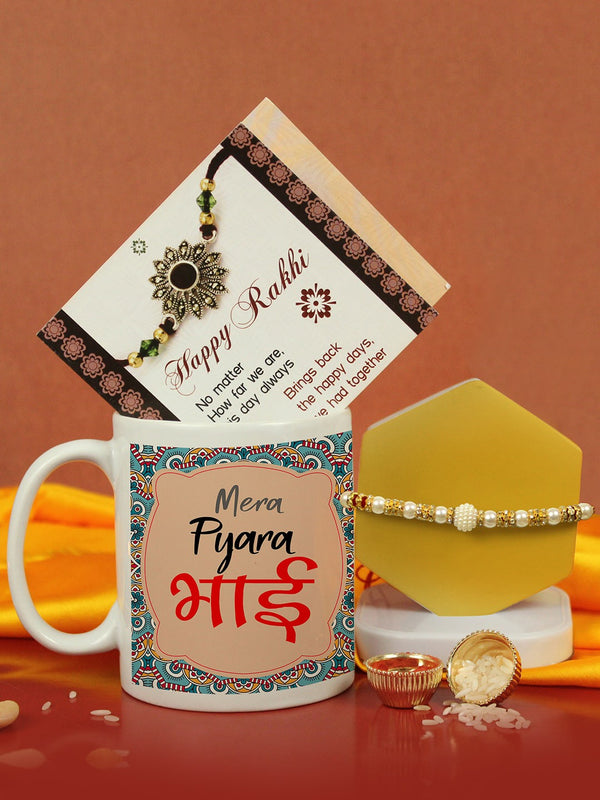 Happy Rakhi
No matter
How far we are,
is day always
Brings back
the happy days,
we had together
Mera
Pyara
भाई